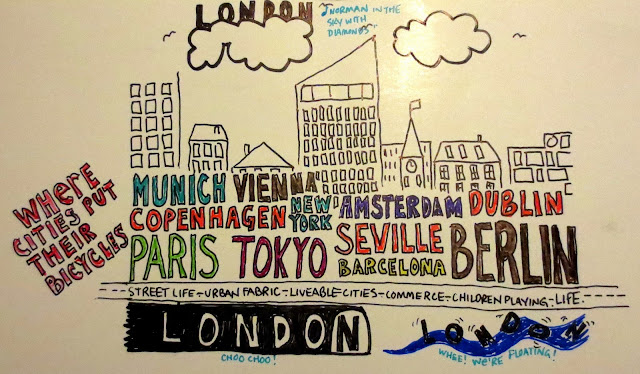 LONDON
♪NORMAN IN THE
SKY WITH
DIAMONDS"
WHERE
CITIES PUT
THEIR
BICYCLES
MUNICH VIENNA NEW YORK AMSTERDAM DUBLIN
COPENHAGEN
PARIS TOKYO SEVILLE BERLIN
BARCELONA
STREET LIFE-URBAN FABRIC-LIVEABLE CITIES-COMMERCE-CHILDREN PLAYING-LIFE.
LONDON
CHOO CHOO!
LONDON
WHEE! WE'RE FLOATING!